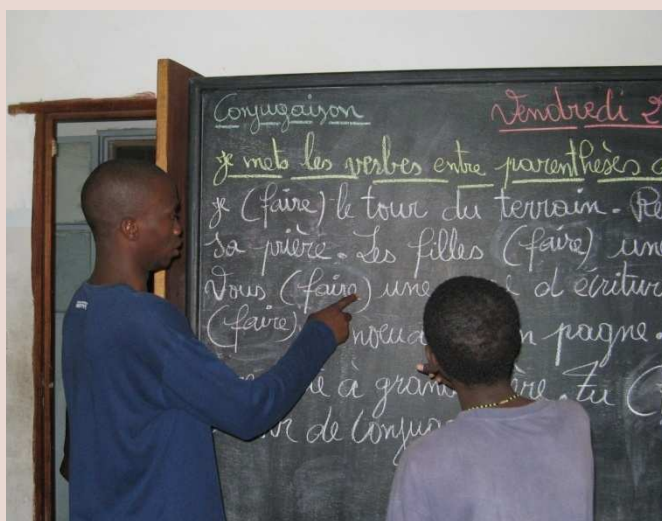 Conjugaison Vendredi 2
je mets les verbes entre parenthèses
je (faire) le tour du terrain.
sa prière. Les filles (faire) une
Vous (faire) une d'écritur
(faire) noeud pagne.
à grand ère. Tu (
de conjug